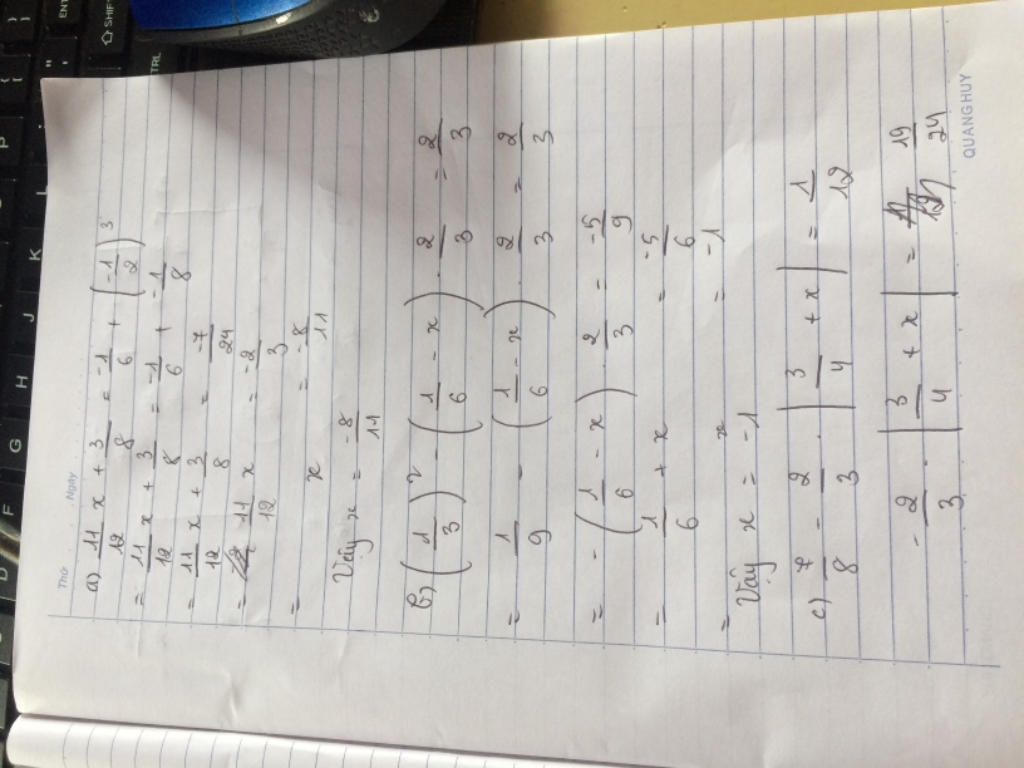 Thứ
Ngày
a) 11/12 x + 3/8 = -1/6 + (-1/2)^3
= 11/12 x + 3/8 = -1/6 + -1/8
= 11/12 x + 3/8 = -7/24
= 11/12 x = -2/3
= x = -8/11
Vậy x = -8/11
b) (1/3)^2 - (1/6 - x) . 2/3 = 2/3
= 1/9 - (1/6 - x) . 2/3 = 2/3
= - (1/6 - x) . 2/3 = -5/9
= 1/6 + x = -5/6
= x = -1
Vậy x = -1
c) 7/8 - 2/3 . |3/4 + x| = 1/12
- 2/3 . |3/4 + x| = 19/24
QUANG HUY
ENT
SHIFT
TRL
P
L
K
J
H
G
F
D